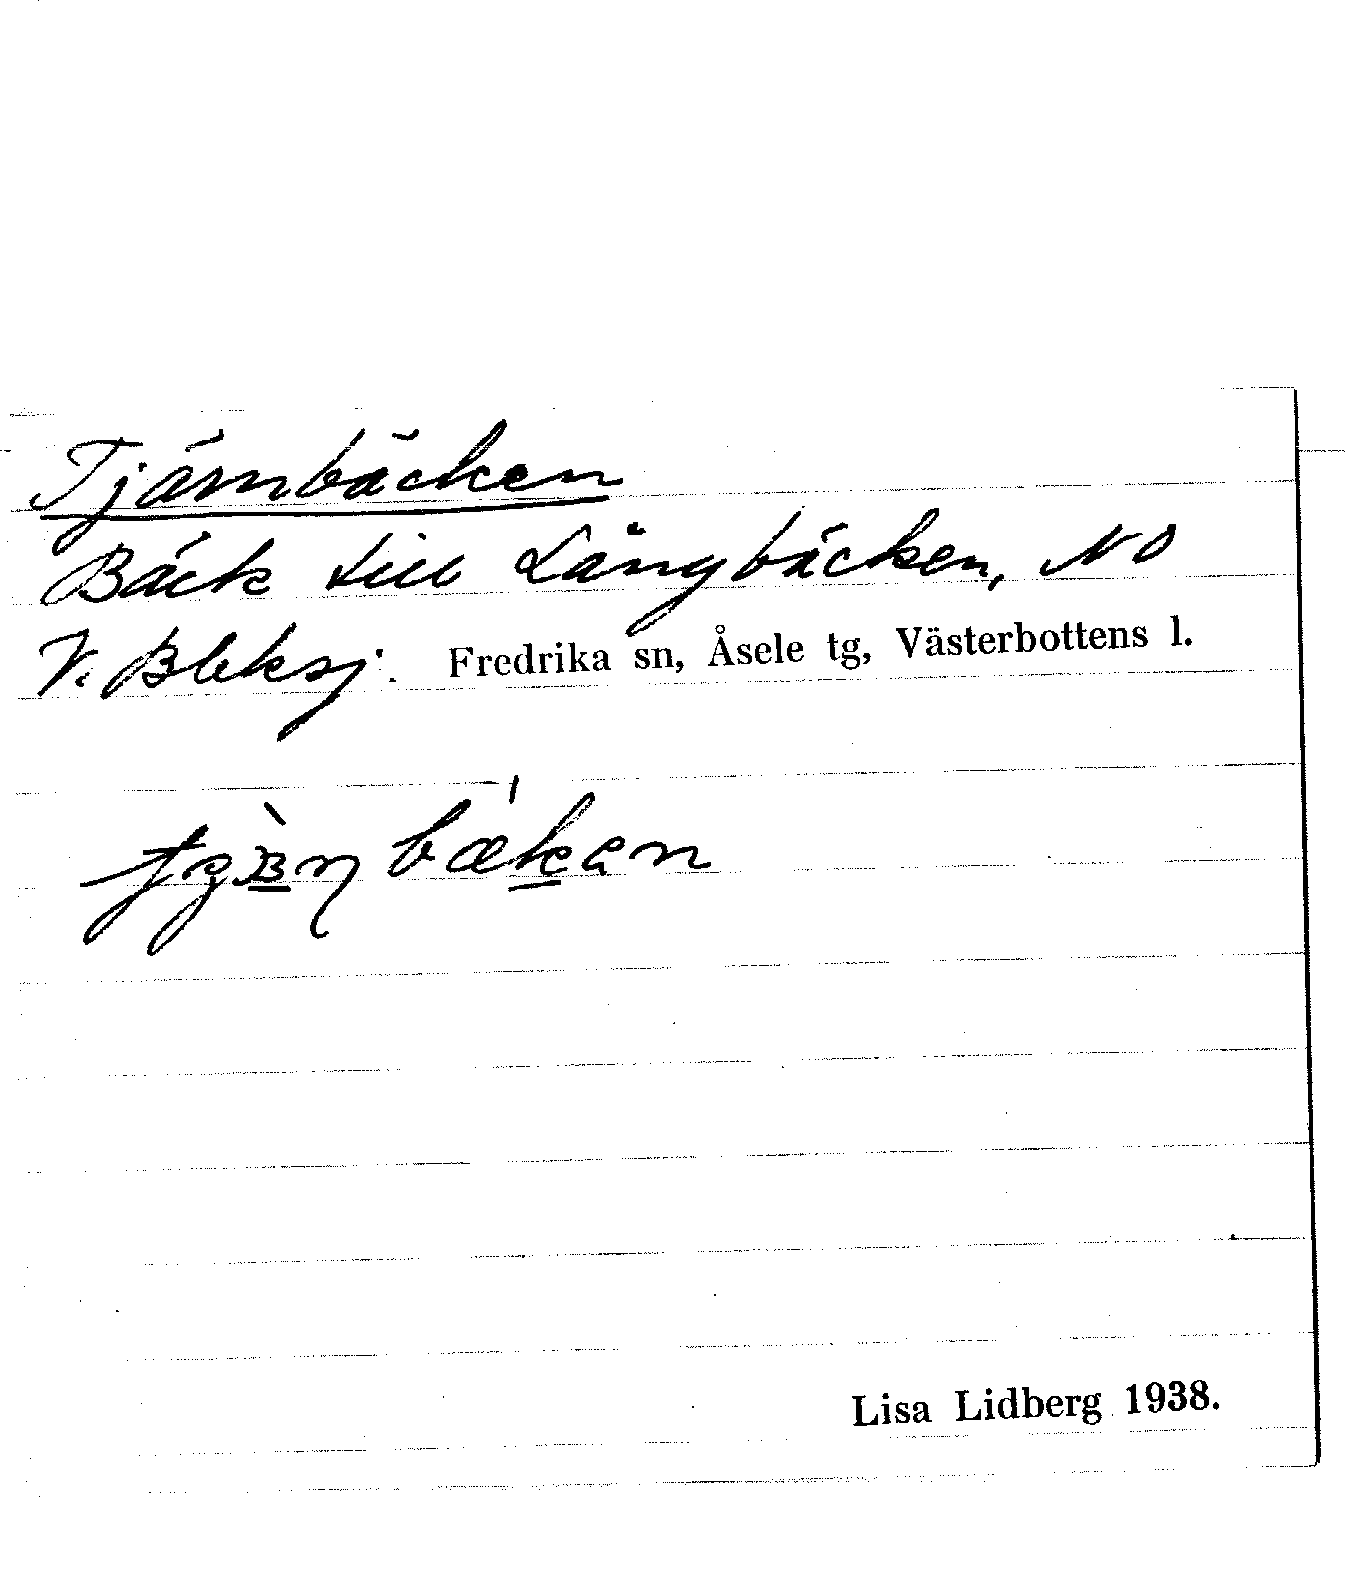 Tjärnbäcken
Bäck till Långbäcken, NO
V. Bleksj. Fredrika sn, Åsele tg, Västerbottens l.
bækan
Lisa Lidberg 1938.